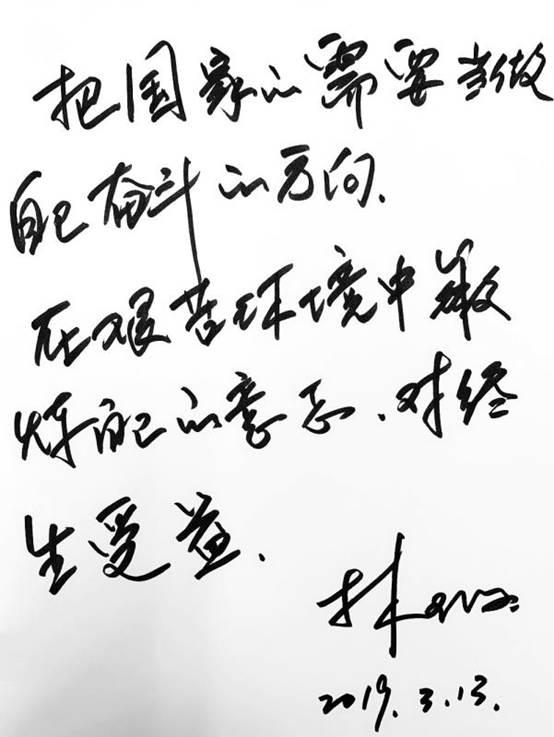 把国家的需要当做
自己奋斗的方向.
在艰苦环境中锻
炼自己的意志.对终
生受益.
林
2019.3.13.